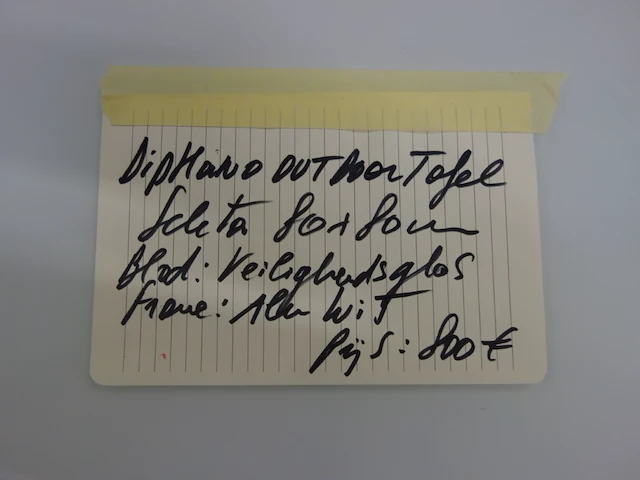 DipHano OUTDoor Tafel
Seleta 80x80cm
Blad: Veiligheidsglas
frame: Alu wit
Prijs: 800€